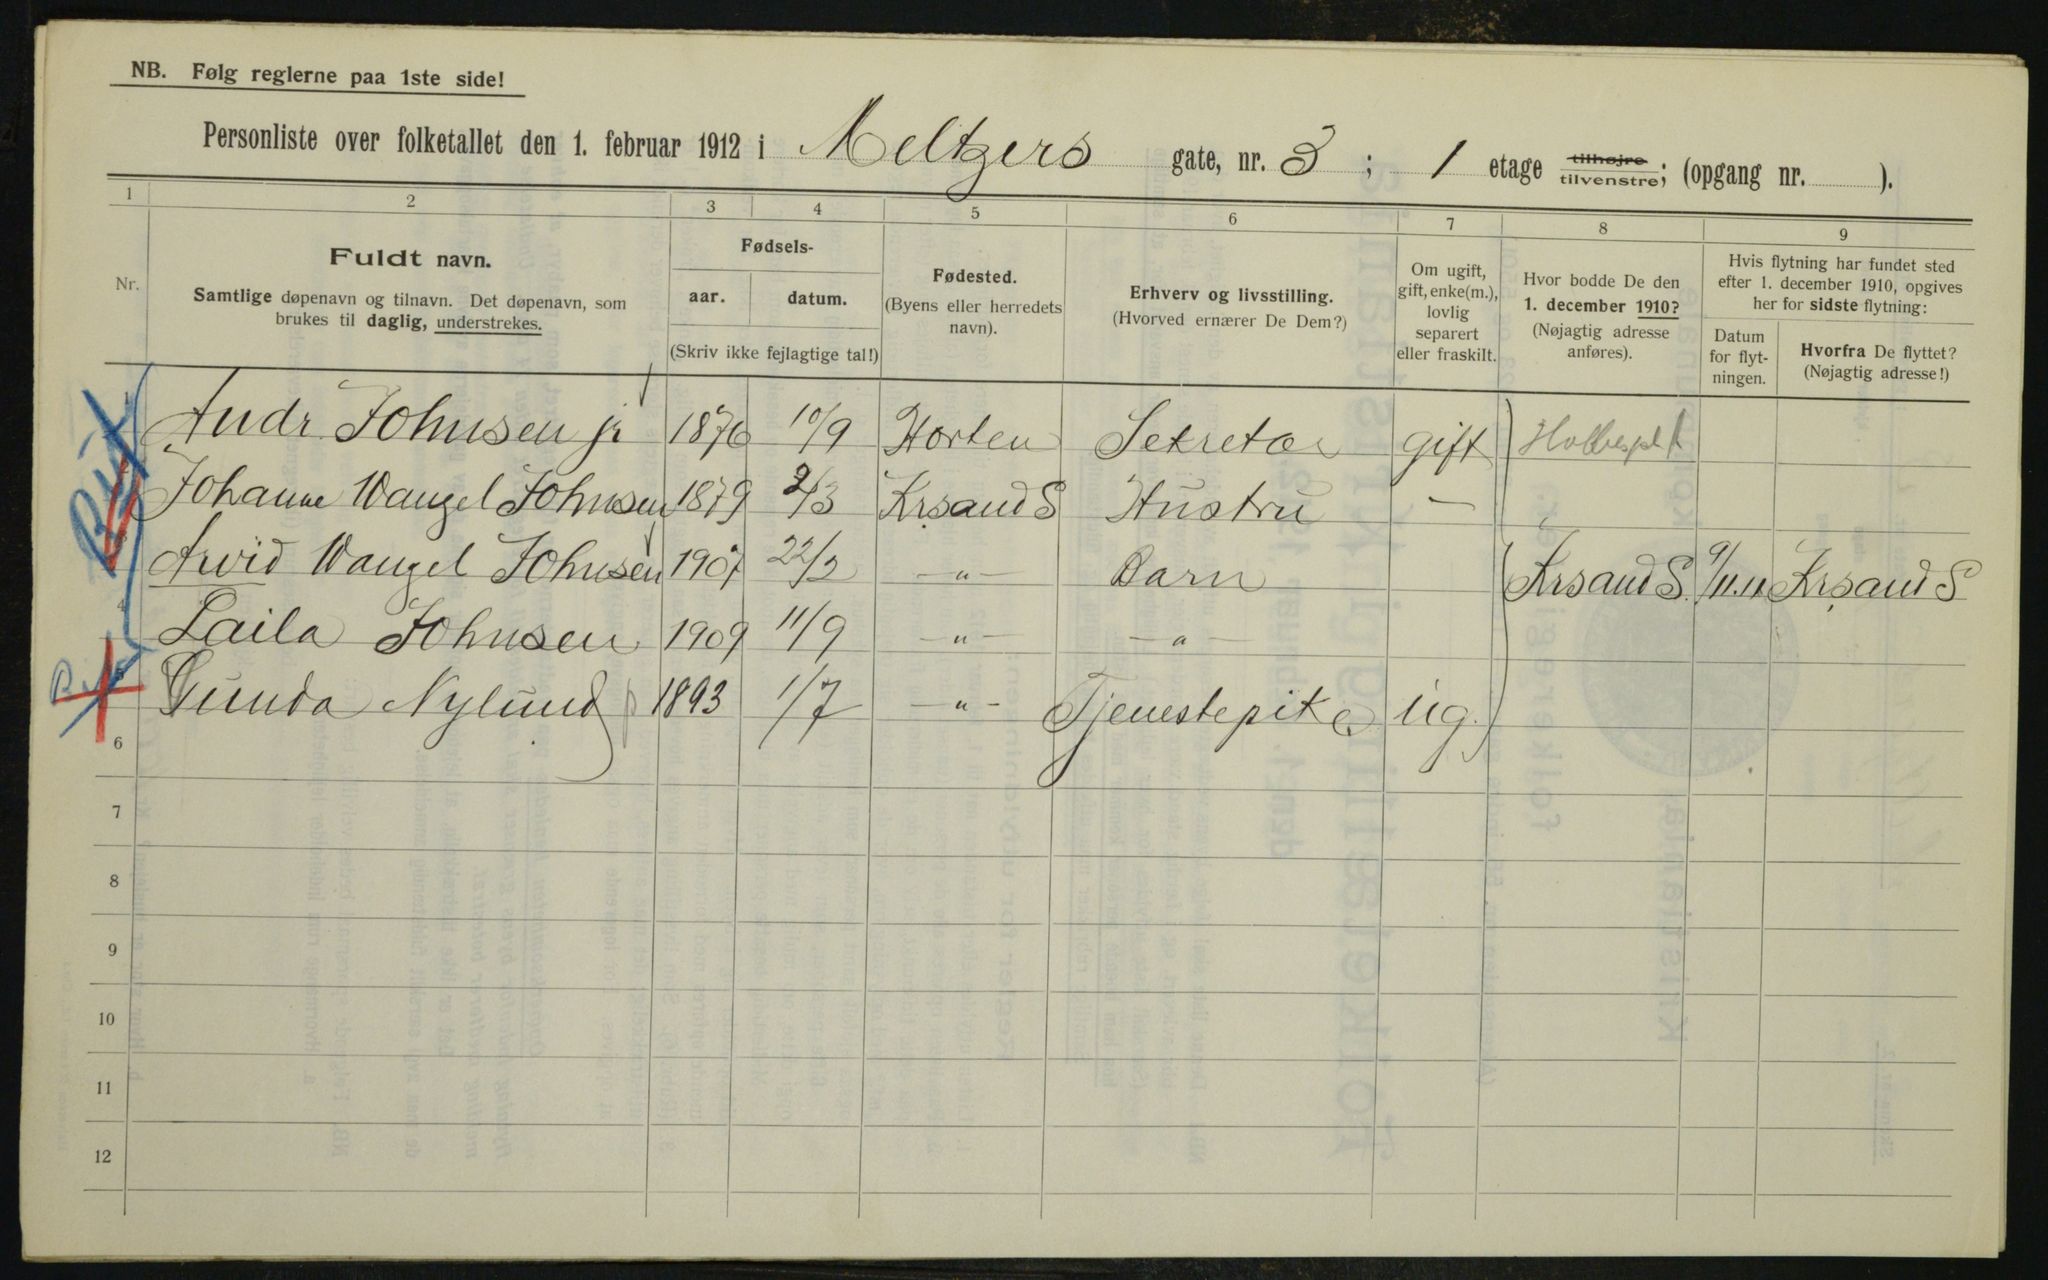 NB. Følg reglerne paa 1ste side!
Personliste over folketallet den 1. februar 1912 i Meltzers gate, nr. 3 ; 1 etage tilhøjre tilvenstre; (opgang nr. ).
1 2 3 4 5 6 7 8 9
Nr.
Fuldt navn.
Samtlige døpenavn og tilnavn. Det døpenavn, som
brukes til daglig, understrekes.
Fødsels-
aar. datum.
(Skriv ikke fejlagtige tal!)
Fødested.
(Byens eller herredets
navn).
Erhverv og livsstilling.
(Hvorved ernærer De Dem?)
Om ugift,
gift, enke(m.),
lovlig
separert
eller fraskilt.
Hvor bodde De den
1. december 1910?
(Nøjagtig adresse
anføres).
Hvis flytning har fundet sted
efter 1. december 1910, opgives
her for sidste flytning:
Datum
for flyt-
ningen.
Hvorfra De flyttet?
(Nøjagtig adresse!)
Andr. Johnsen jr 1876 10/9 Horten Sekretær gift
2 Johanne Wangel Johnsen 1879 2/3 Krsand S Hustru —
3 Arvid Wangel Johnsen 1907 22/2 —"— Barn Krsand S. 9/11.11 Krsand S
4 Laila Johnsen 1909 11/9 —"— —"—
5 Gunda Nylund 1893 1/7 —"— Tjenestepike ug.
6
7
8
9
10
11
12